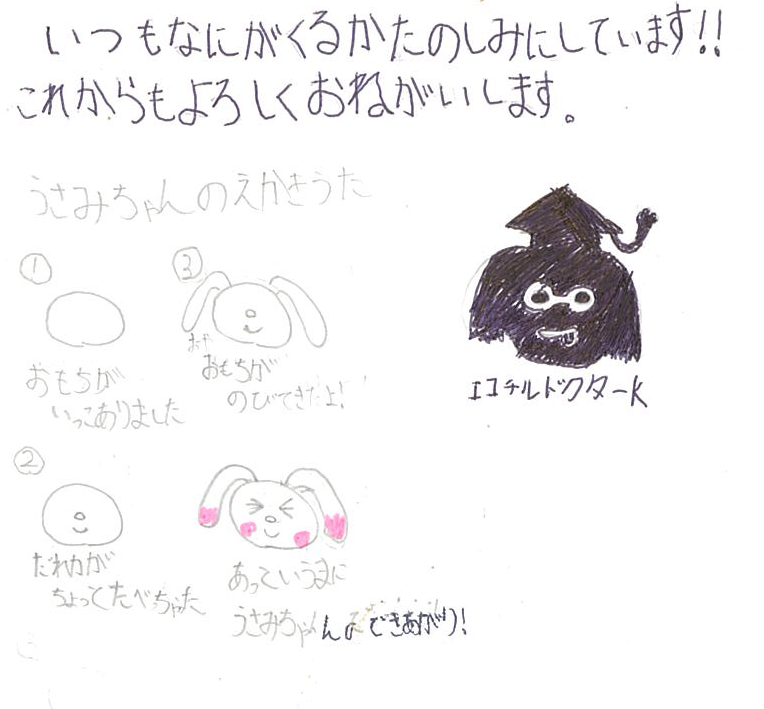 いつもなにがくるかたのしみにしています!!
これからもよろしくおねがいします。
うさみちゃんのえかきうた
①
おもちが
いっこありました
②
だれかが
ちょってたべちゃった
③
おもちが
のびてきたよ!
あっというまに
うさみちゃん
できあがり!
エコチルドクターK